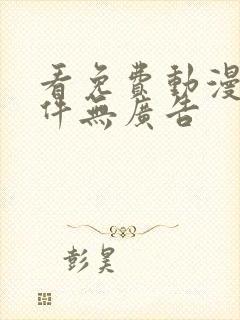 看免費動漫
件無廣告
彭昊